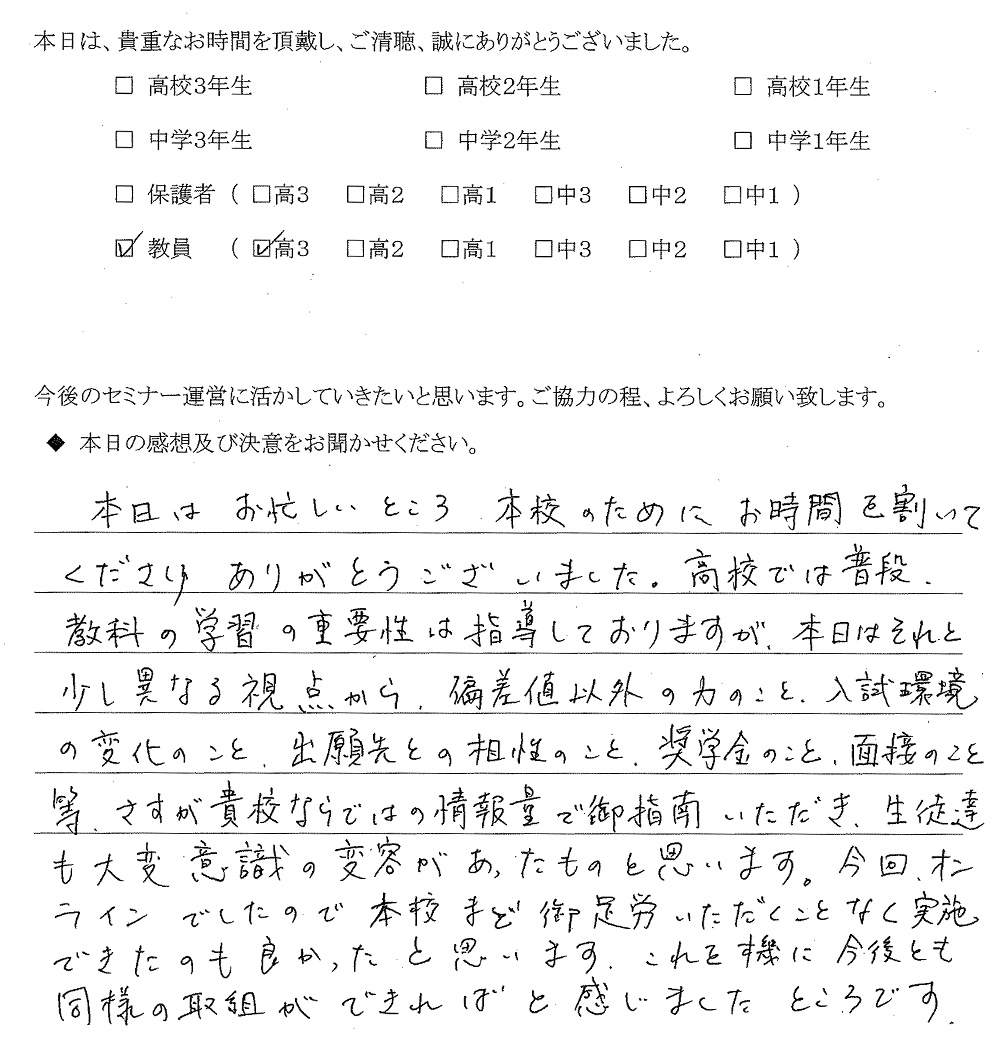 本日は、貴重なお時間を頂戴し、ご清聴、誠にありがとうございました。
□ 高校3年生 □ 高校2年生 □ 高校1年生
□ 中学3年生 □ 中学2年生 □ 中学1年生
□ 保護者 ( □高3 □高2 □高1 □中3 □中2 □中1 )
☑ 教員 ( ☑高3 □高2 □高1 □中3 □中2 □中1 )
今後のセミナー運営に活かしていきたいと思います。ご協力の程、よろしくお願い致します。
◆ 本日の感想及び決意をお聞かせください。
本日は お忙しいところ 本校のために お時間を割いて
くださり ありがとうございました。高校では普段、
教科の学習の重要性は指導しておりますが、本日はそれと
少し異なる視点から、偏差値以外の力のこと、入試環境
の変化のこと、出願先との相性のこと、奨学金のこと、面接のこと
等、さすが貴校ならではの情報量で御指南いただき、生徒達
も大変意識の変容があったものと思います。今回、オン
ラインでしたので本校まで御足労いただくことなく実施
できたのも良かったと思います。これを機に今後とも
同様の取組ができればと感じましたところです。